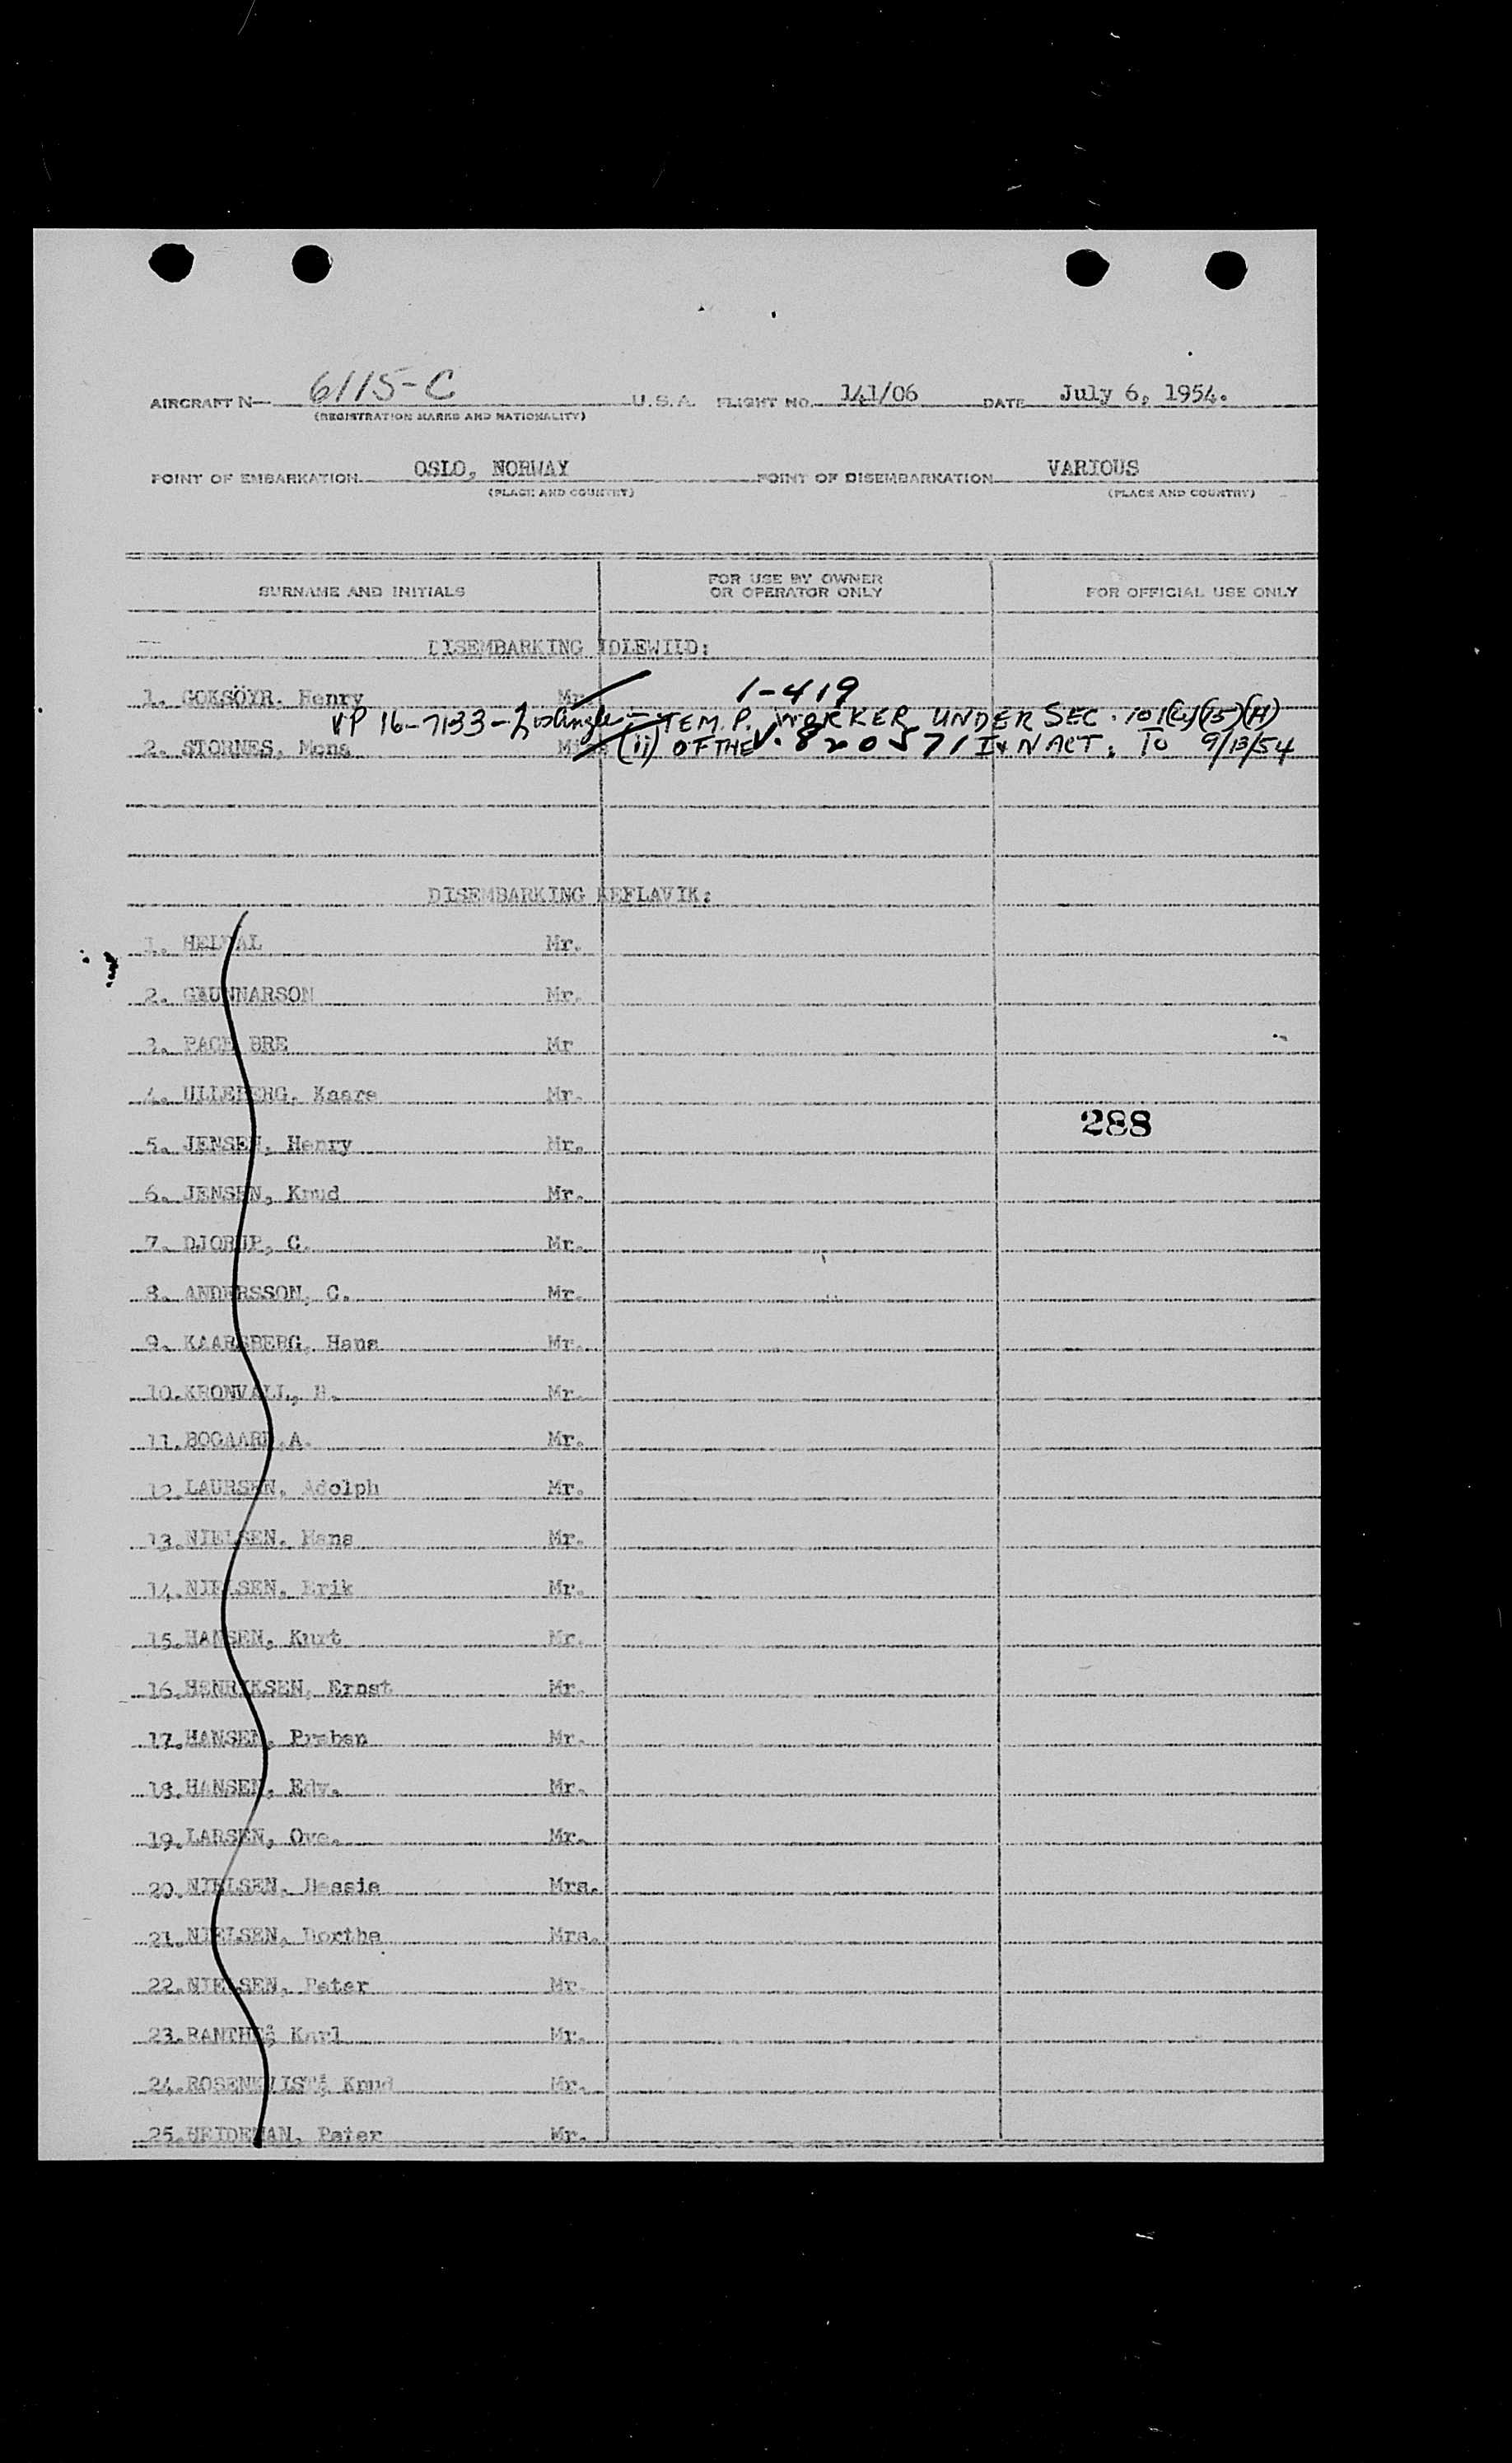 AIRCRAFT N- 6115-C U.S.A. FLIGHT NO. 141/06 DATE July 6, 1954.
(REGISTRATION MARKS AND NATIONALITY)
POINT OF EMBARKATION OSLO, NORWAY POINT OF DISEMBARKATION VARIOUS
(PLACE AND COUNTRY) (PLACE AND COUNTRY)
SURNAME AND INITIALS FOR USE BY OWNER OR OPERATOR ONLY FOR OFFICIAL USE ONLY
DISEMBARKING IDLEWILD:
1. GOKSÖYR, Henry Mr. 1-419
VP 16-7133- TEMP. WORKER UNDER SEC. 101(a)(15)(H)
2. STORNES, Mona (ii) OF THE V. 820571 I & N ACT. TO 9/13/54
DISEMBARKING KEFLAVIK:
1. Mr.
2. GAUNNARSON Mr.
3. BRE Mr
4. ULLEBERG, Kaare Mr.
288
5. JENSEN, Henry Mr.
6. JENSEN, Knud Mr.
7. DJORUP, C. Mr.
8. ANDERSSON, C. Mr.
9. KAARSBERG, Hans Mr.
10. KRONVALL, Mr.
11. BOGAARD, A. Mr.
12. LAURSEN, Adolph Mr.
13. NIELSEN, Hans Mr.
14. NIELSEN, Erik Mr.
15. HANSEN, Kurt Mr.
16. HENRIKSEN, Ernst Mr.
17. HANSEN, Preben Mr.
18. HANSEN, Edv. Mr.
19. LARSEN, Ove. Mr.
20. NIELSEN, Mrs.
21. NIELSEN, Dorthe Mrs.
22. NIELSEN, Peter Mr.
23. Karl Mr.
24. ROSENKVIST, Knud Mr.
25. HEIDEMAN, Peter Mr.